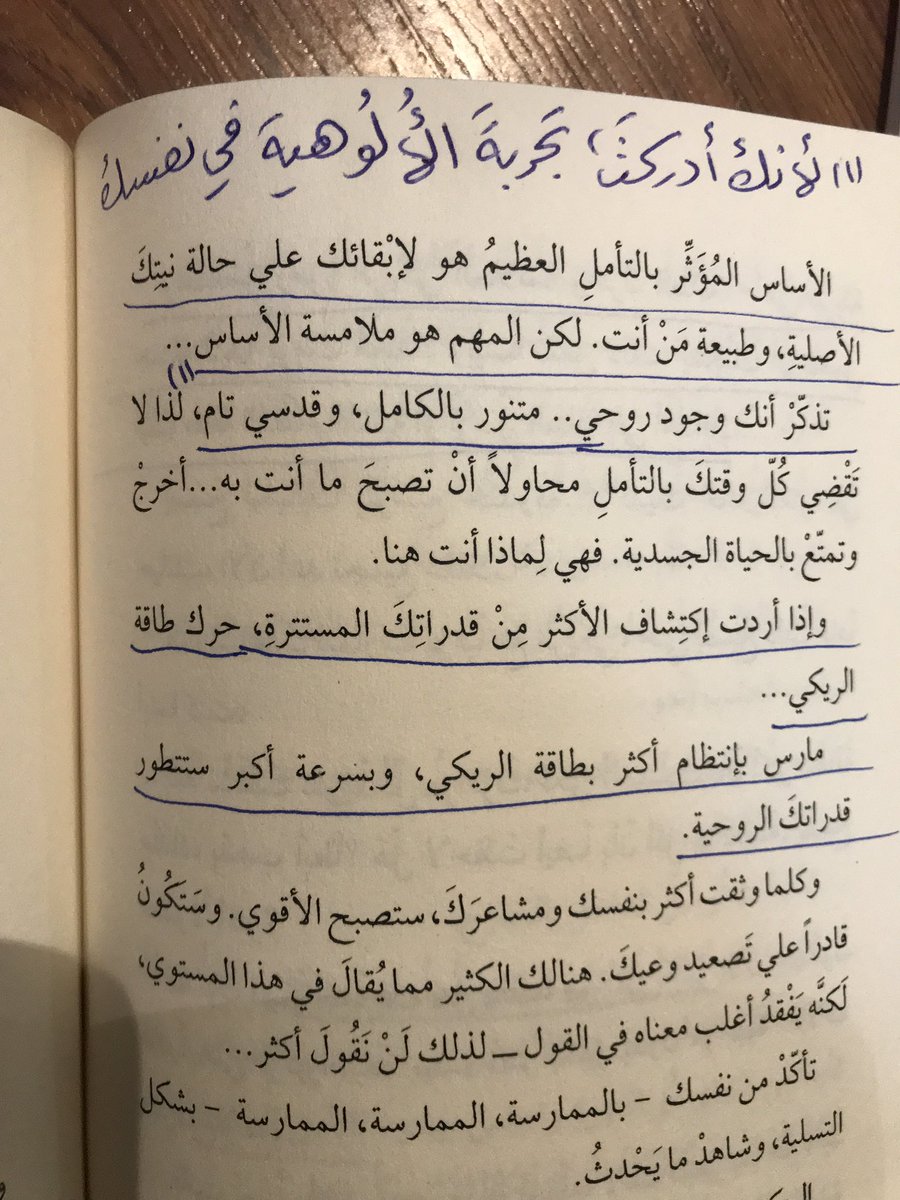 (١) لأنك أدركتَ، تجربةَ الأُلُوهية في نفسك
الأساس المُؤَثِّر بالتأملِ العظيمُ هو لإبْقائك علي حالة نيتِكَ
الأصليةِ، وطبيعة مَنْ أنت. لكن المهم هو ملامسة الأساس...
(١)
تذكّرْ أنك وجود روحي.. متنور بالكامل، وقدسي تام، لذا لا
تَقْضِي كُلّ وقتكَ بالتأملِ محاولاً أنْ تصبحَ ما أنت به...أخرجْ
وتمتّعْ بالحياة الجسدية. فهي لِماذا أنت هنا.
وإذا أردت إكتِشاف الأكثر مِنْ قدراتِكَ المستترةِ، حرك طاقة
الريكي...
مارس بإنتظام أكثر بطاقة الريكي، وبسرعة أكبر ستتطور
قدراتكَ الروحية.
وكلما وثقت أكثر بنفسك ومشاعرَكَ، ستصبح الأقوي. وسَتَكُونُ
قادراً علي تَصعيد وعيكَ. هنالك الكثير مما يُقالَ في هذا المستوي،
لَكنَّه يَفْقدُ أغلب معناه في القول ــ لذلك لَنْ نَقُولَ أكثر...
تأكّدْ من نفسك - بالممارسة، الممارسة، الممارسة - بشكل
التسلية، وشاهدْ ما يَحْدثُ.